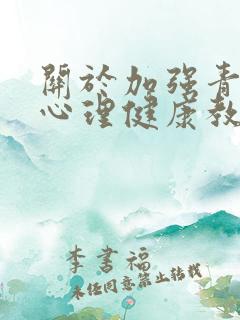 關於加强青
心理健康教
李書福
未经同意禁止转载